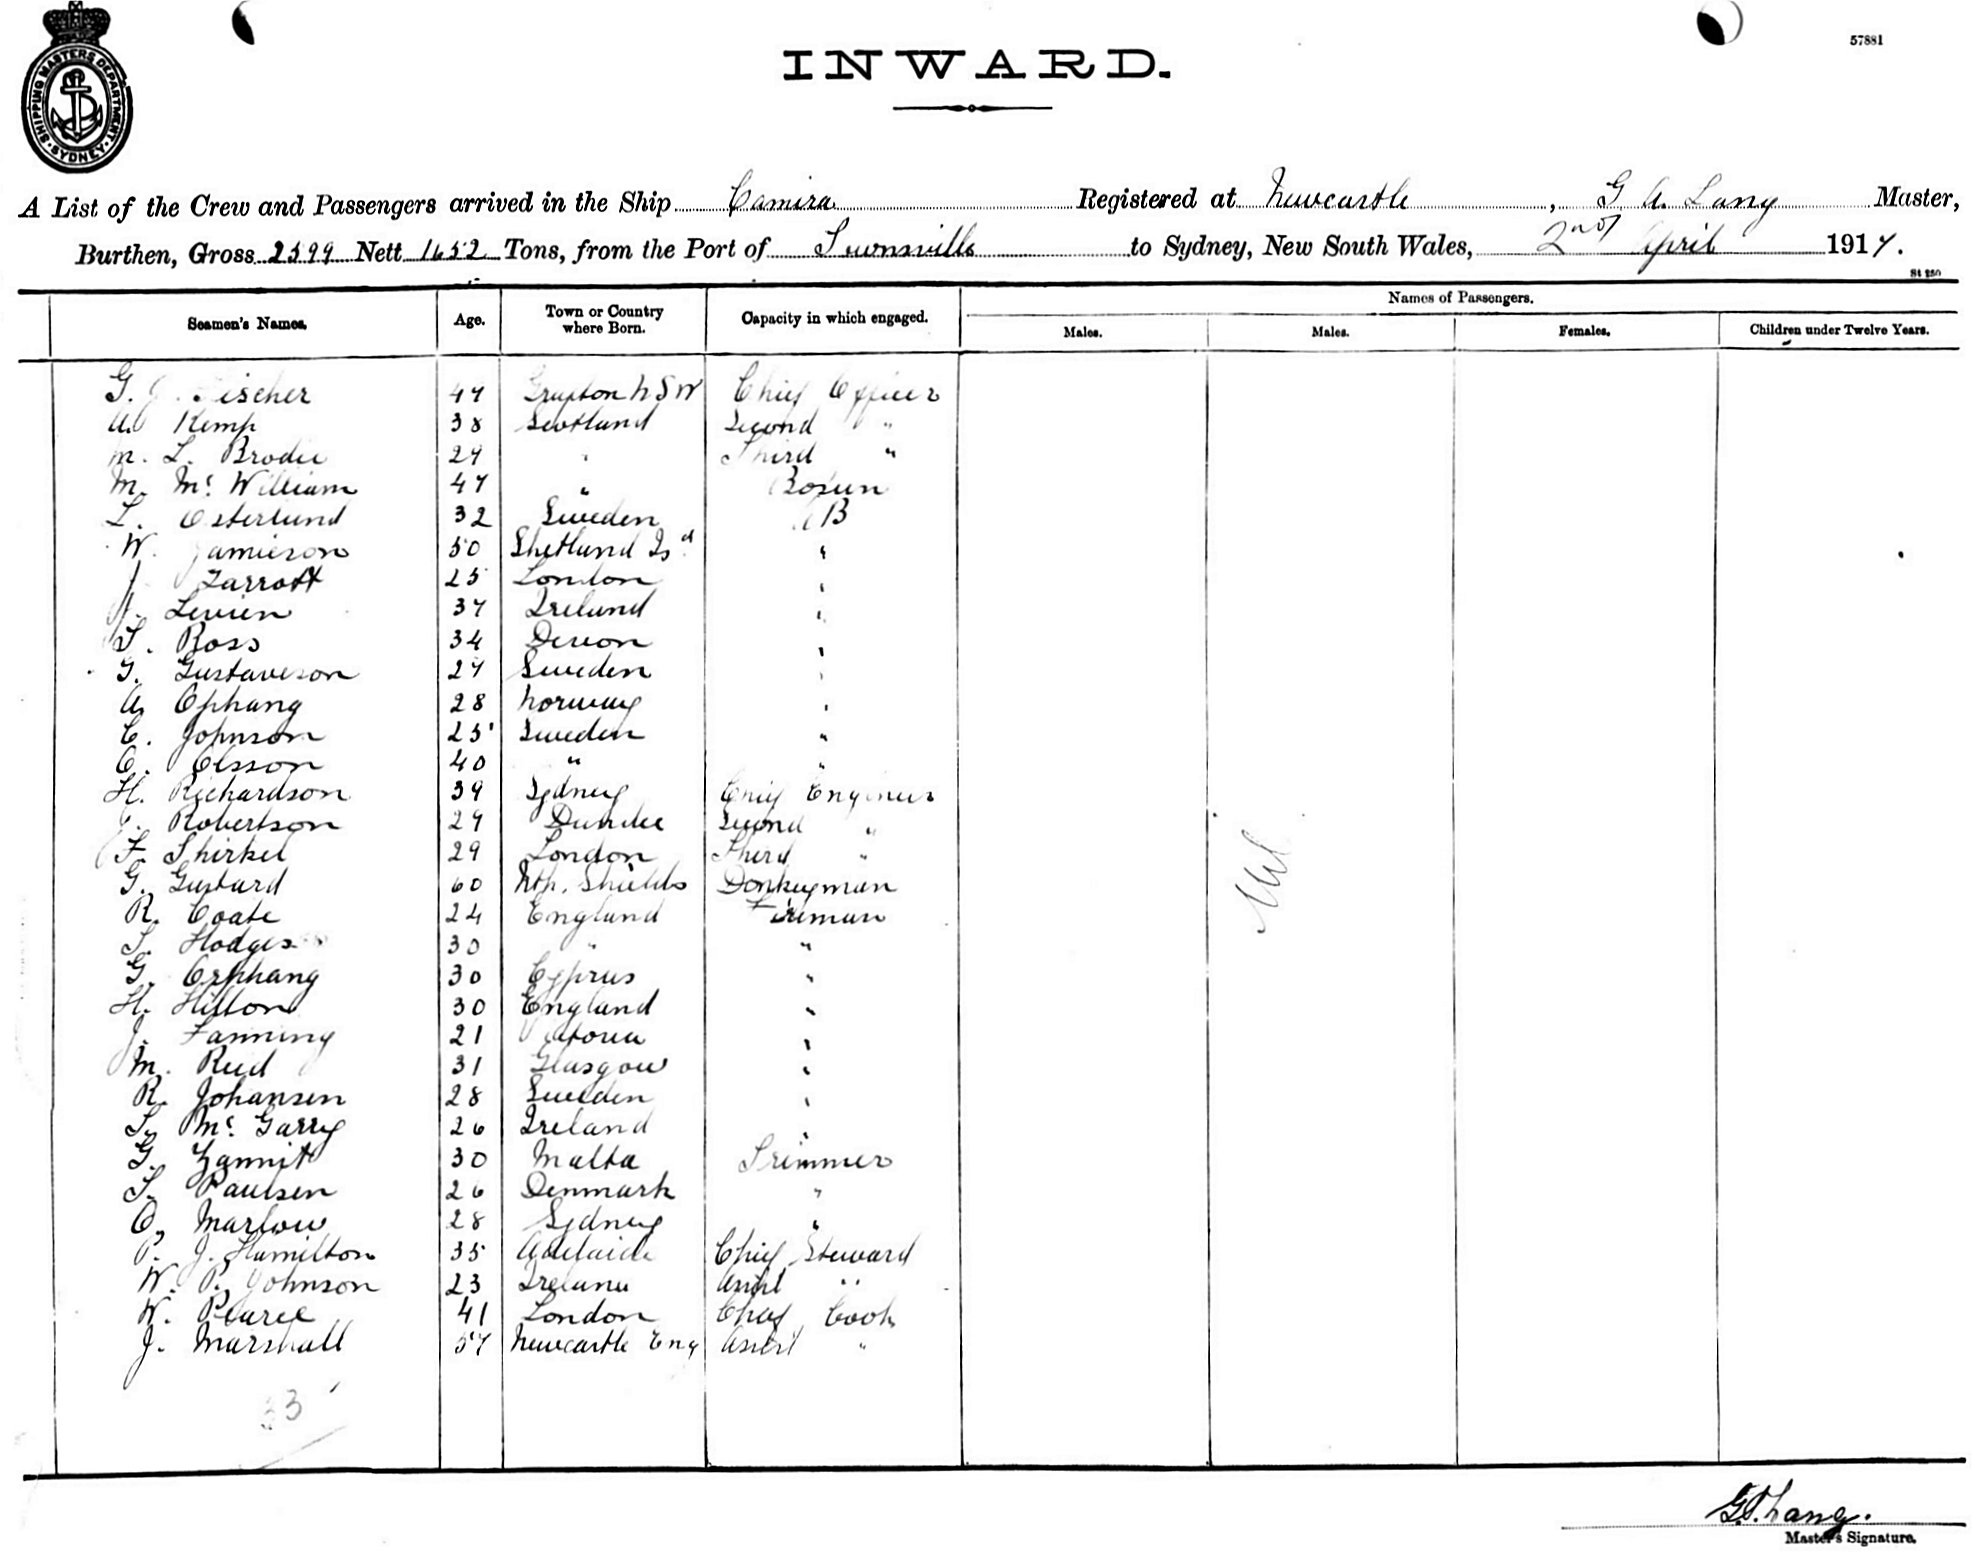 SHIPPING MASTERS DEPARTMENT SYDNEY
57881
INWARD.
A List of the Crew and Passengers arrived in the Ship Camira Registered at Newcastle, G A. Lang Master,
Burthen, Gross 2599 Nett 1652 Tons, from the Port of Townsville to Sydney, New South Wales, 2nd April 1917.
St 250
Names of Passengers.
Seamen's Names. Age. Town or Country where Born. Capacity in which engaged. Males. Males. Females. Children under Twelve Years.
G. Fischer 47 Grafton NSW Chief Officer
A. Kemp 38 Scotland Second "
M. L. Brodie 29 " Third "
M. Mc William 47 " Bosun
L. Osterlund 32 Sweden AB
W. Jamieson 50 Shetland Isd "
J. Jarrott 25 London "
Levien 37 Ireland "
T. Ross 34 Devon "
G. Gustaveson 27 Sweden "
A. Ophang 28 Norway "
C. Johnson 25 Sweden "
O. Olsson 40 " "
H. Richardson 39 Sydney Chief Engineer
Robertson 29 Dundee Second "
F. Thirkel 29 London Third "
G. Gustard 60 Nth. Shields Donkeyman
R. Coate 24 England Fireman
T. Hodges 30 " "
G. Orphang 30 Cyprus "
H. Hilton 30 England "
J. Fanning 21 Victoria "
M. Reid 31 Glasgow "
R. Johansen 28 Sweden "
T. Mc. Garry 26 Ireland "
G. Zammit 30 Malta Trimmer
T. Paulsen 26 Denmark "
O. Marlow 28 Sydney "
P. J. Hamilton 35 Adelaide Chief Steward
W. P. Johnson 23 Ireland Assist "
W. Pearce 41 London Chief Cook
J. Marshall 57 Newcastle Eng Assist "
Nil
33
G.A. Lang.
Master's Signature.